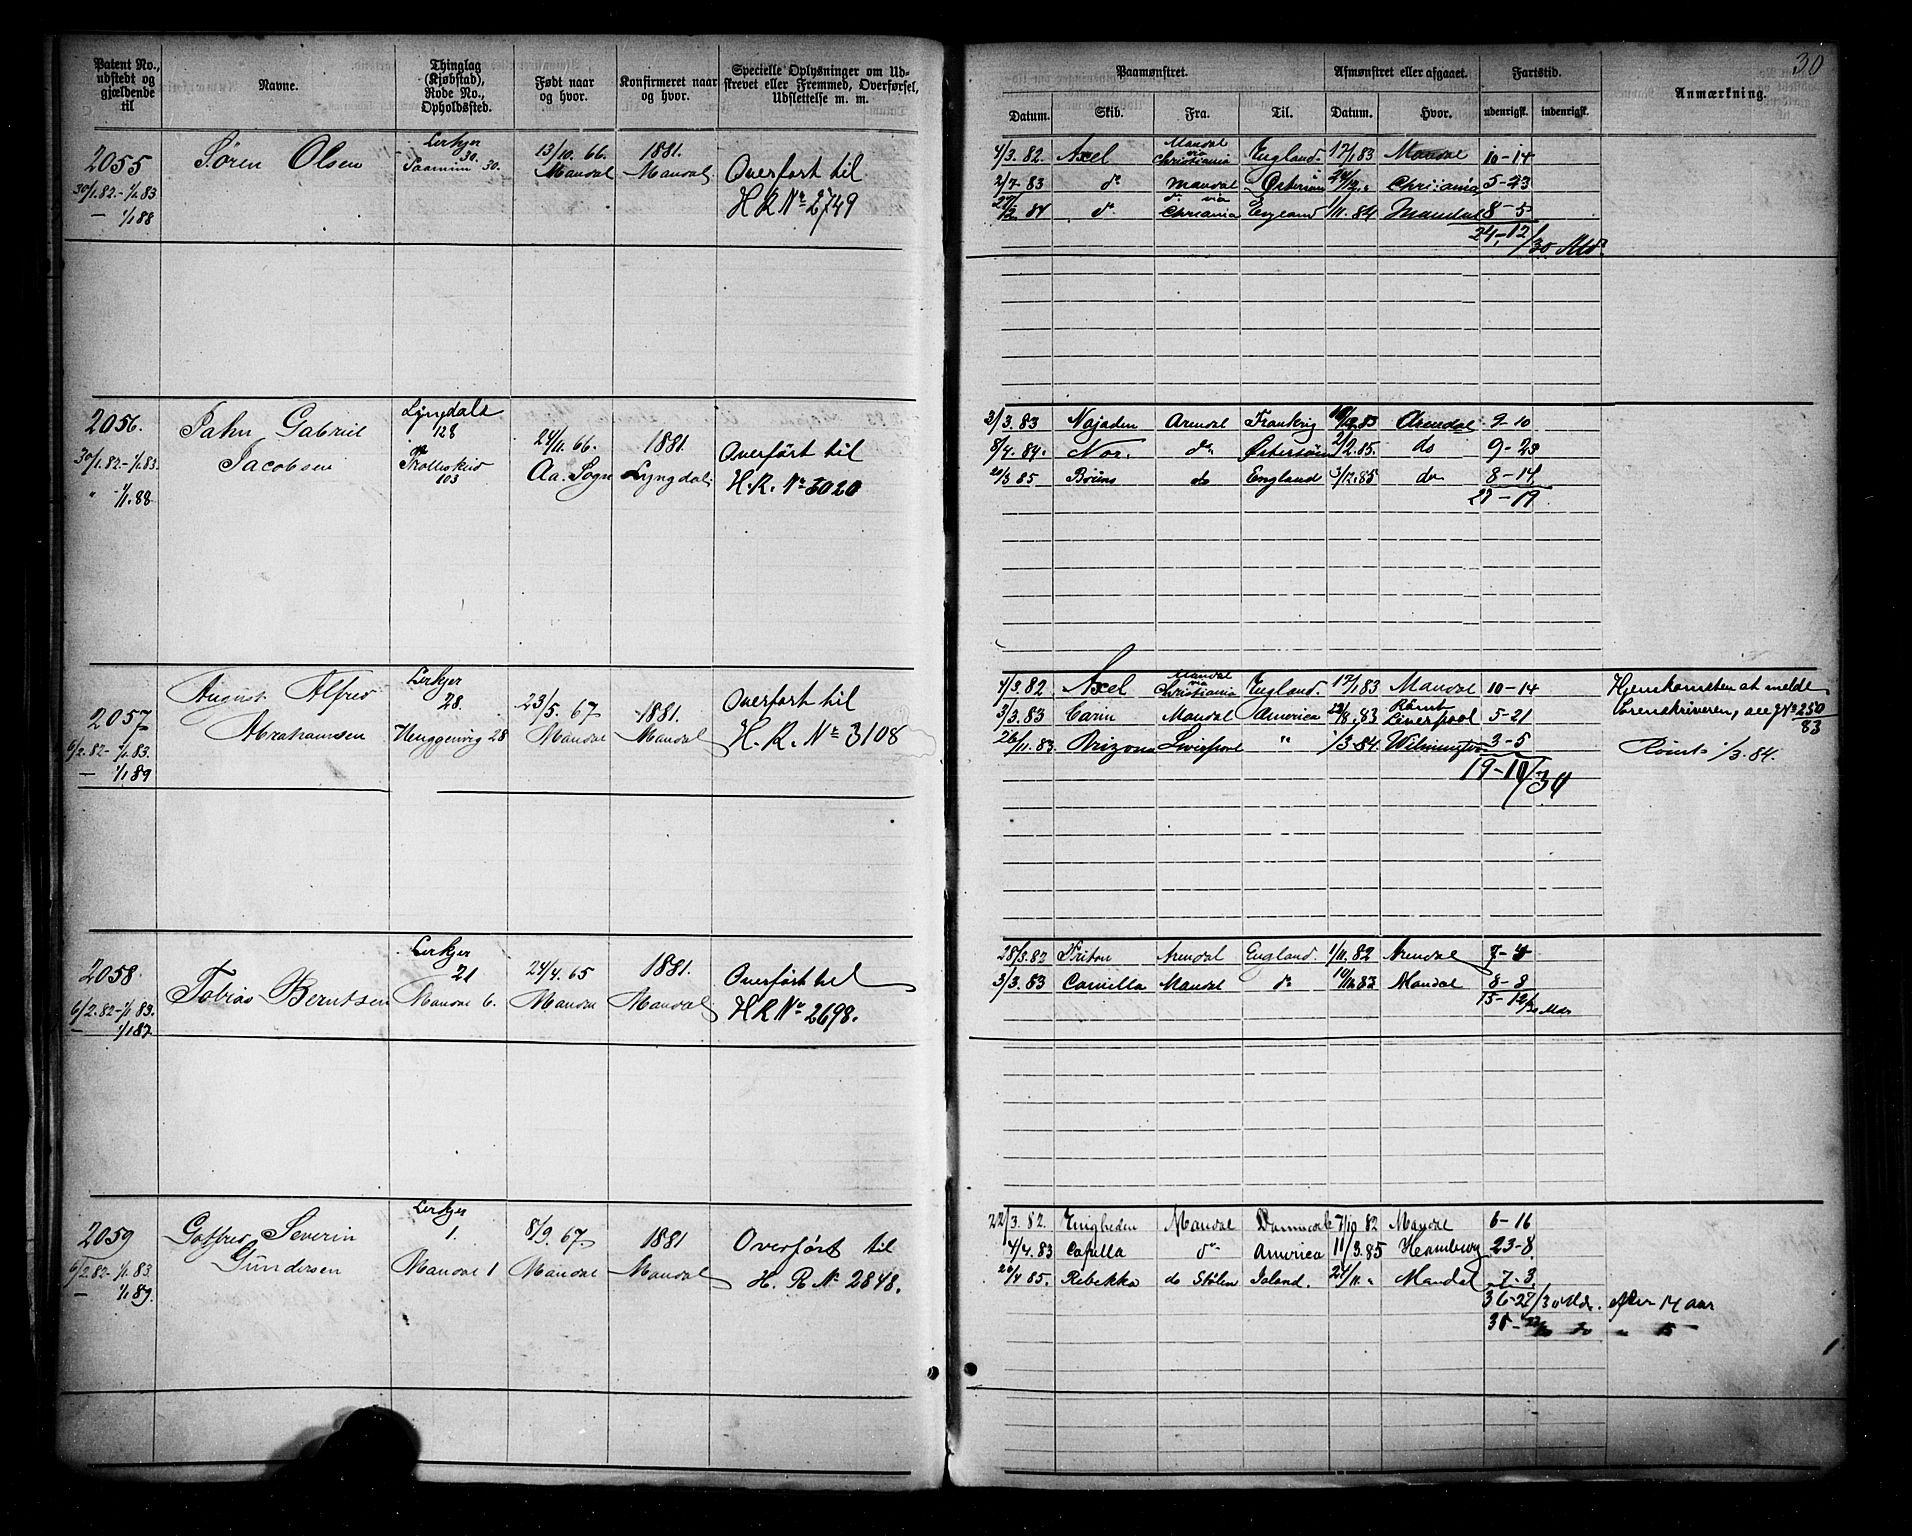 30
Patent No., udstedt og gjældende til
Navne.
Thinglag (Kjøbstad), Rode No., Opholdssted.
Født naar og hvor.
Konfirmeret naar og hvor.
Specielle Oplysninger om Udstrevet eller Fremmed, Overførsel, Udslettelse m. m.
Paamønstret.
Afmønstret eller afgaaet.
Fartstid.
Anmærkning.
Datum. Skib. Fra. Til. Datum. Hvor. udenrigsk. indenrigsk.
2055
30/1.82 - 1/1.83
— 1/1 88
Søren Olsen
30.
30.
13/10. 66.
Mandal
1881.
Mandal
Overført til
H R No 2749
4/3. 82. Axel Mandal via Christiania England. 17/1 83 Mandal 10-14
2/7 83 do Mandal Østersøen Chr:iania 5-23
84 do do via Chr:iania England 1/11. 84 Mandal 8-5
24-12/30 Mdr
2056.
30/1.82 - 1/1.83.
" 1/1.88
Jahn Gabriel
Jacobsen
Lyngdals
128
103
24/11. 66.
Aa. Sogn
1881.
Lyngdal
Overført til
H.R. No 3020
3/3. 83 Najaden Arendal Frankrig 83 Arendal 9-10
8/4. 84. Nor. do Østersøen 2/2. 85. do 9-23
20/3 85 do England 3/12. 85 do 8-14
27-19
2057
6/2. 82 - 1/1. 83.
— 1/1 89
August Alfred
Abrahamsen
28.
28
23/5. 67
Mandal
1881.
Mandal
Overført til
H. R. No 3108
4/3. 82 Axel Mandal via Christiania England. 17/1 83 Mandal 10-14
3/3. 83 Carin Mandal America 83 Rømt Liverpool 5-21
26/11. 83. Arizona Liverpool " 1/3 84. Wilmington 3-5
19-10/30
Hjemkomsten at melde
250/83
Rømt 1/3. 84.
2058.
6/2. 82 - 1/1 83.
— 1/1 87
Tobias Berntsen
21
Mandal 6.
24/4. 65
Mandal
1881.
Mandal
Overført til
H R No 2698.
28/3. 82 Triton Arendal England. 1/11. 82 Arendal 7-4
3/3. 83 Camilla Mandal do Mandal 8-8
15-12/30 Mdr
2059
6/2. 82 - 1/1. 83.
— 1/1 89.
Gotfred Severin
Gundersen
1.
Mandal 1
8/9. 67.
Mandal
1881
Mandal
Overført til
H. R. No 2848.
22/3. 82. Enigheden Mandal 7/10 82 Mandal 6-16
4/4. 83 Capella do America 11/3. 85 Hamburg 23-8
85. Rebekka do Island. Mandal 7-3.
36-27/30 Mdr. efter 14 aar